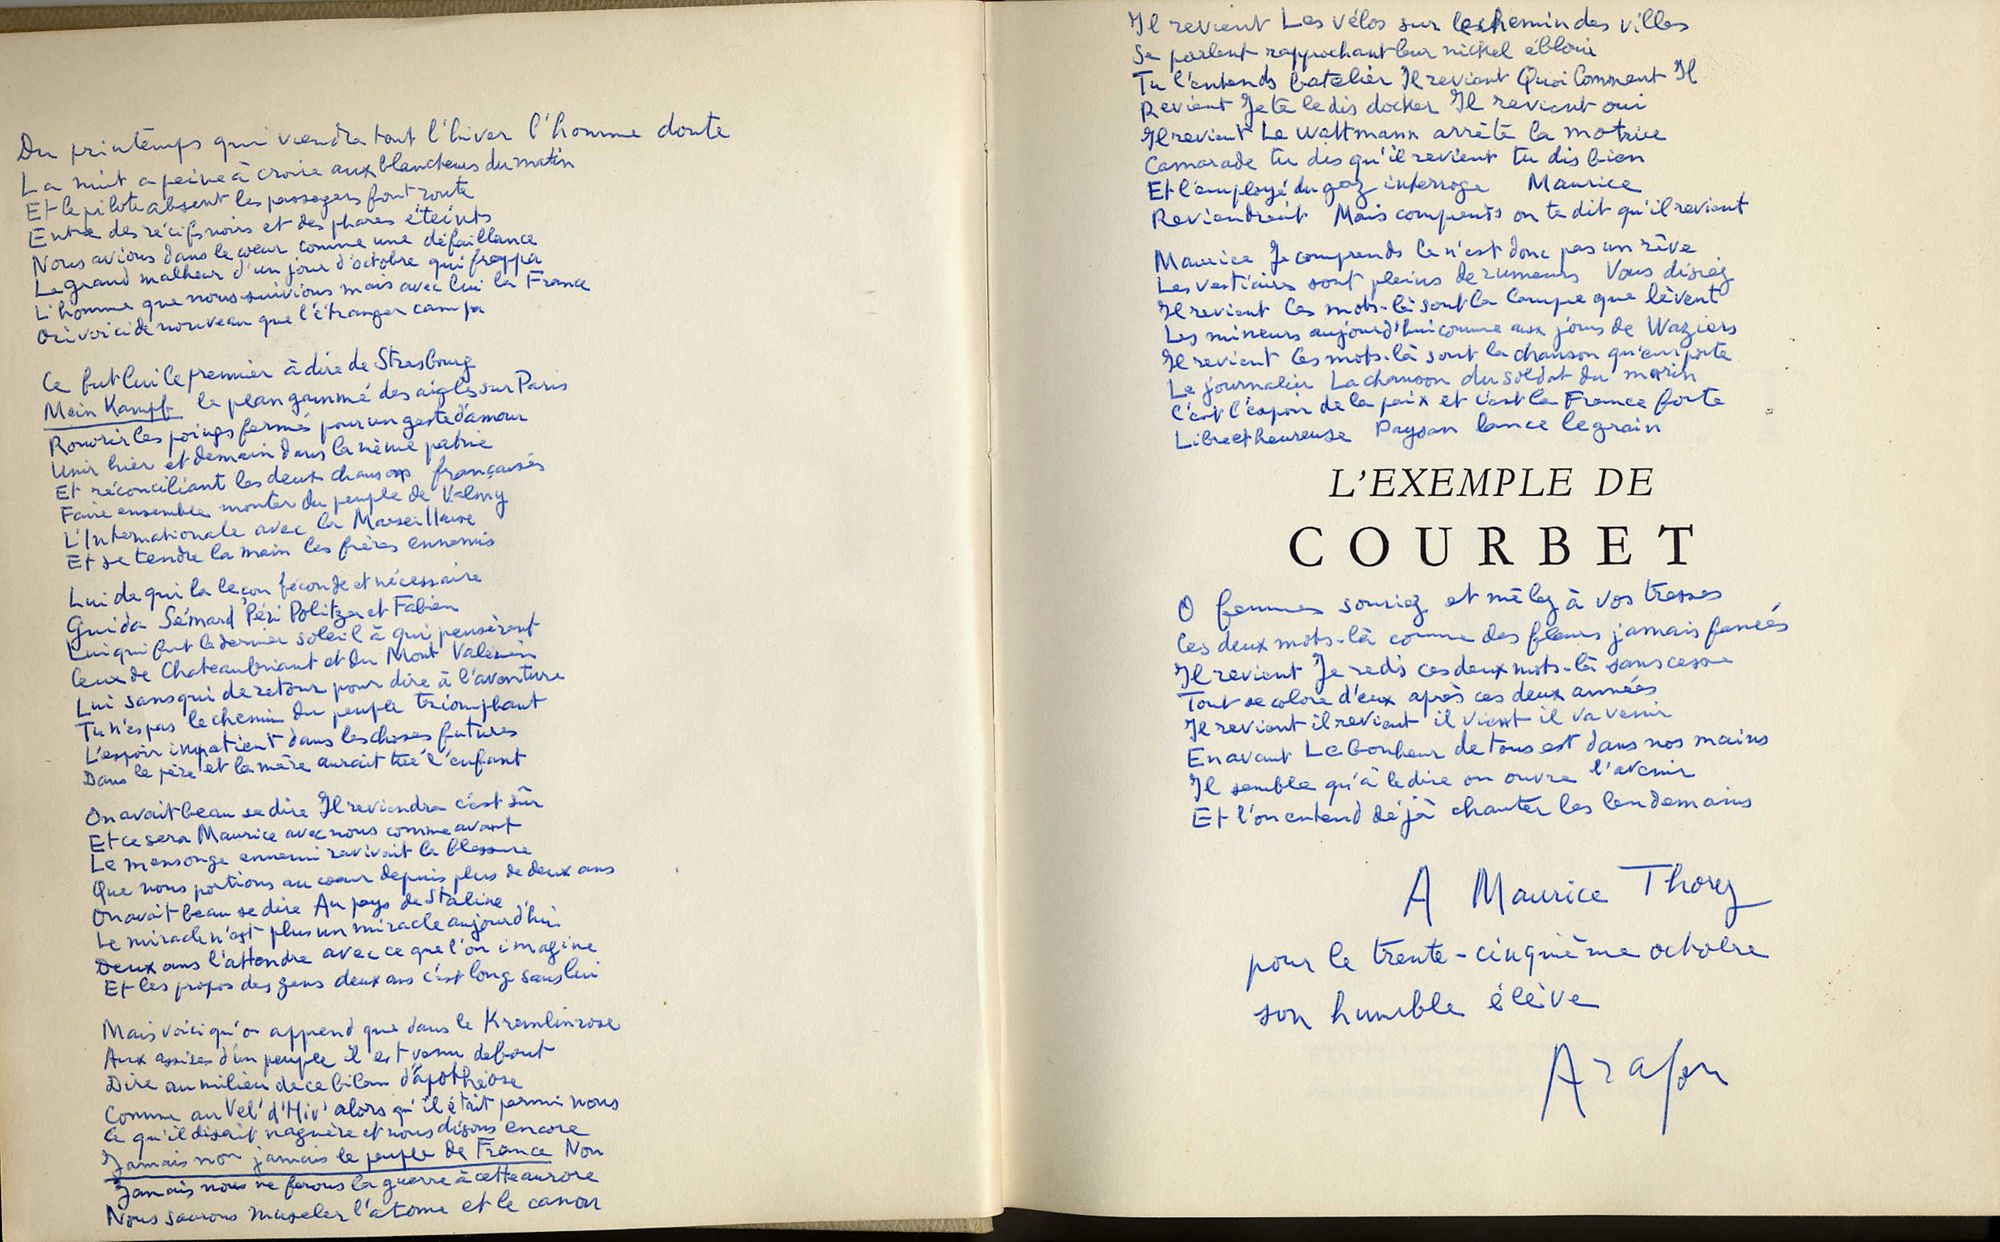 Du printemps qui viendra tout l'hiver l'homme doute
La nuit a peine à croire aux blancheurs du matin
Et le pilote absent les passagers font route
Entre des récifs noirs et des phares éteints
Nous avions dans le cœur comme une défaillance
Le grand malheur d'un jour d'octobre qui frappa
L'homme que nous suivions mais avec lui la France
Où voici de nouveau que l'étranger campa
Ce fut lui le premier à dire de Strasbourg
Mein Kampf le plan gammé des aigles sur Paris
Rouvrir les poings fermés pour un geste d'amour
Unir hier et demain dans la même patrie
Et réconciliant les deux chansons françaises
Faire ensemble monter du peuple de Valmy
L'Internationale avec la Marseillaise
Et se tendre la main les frères ennemis
Lui de qui la leçon féconde et nécessaire
Guida Sémard Péri Politzer et Fabien
Lui qui fut le dernier soleil à qui pensèrent
Ceux de Chateaubriant et du Mont Valérien
Lui sans qui de retour pour dire à l'aventure
Tu n'es pas le chemin du peuple triomphant
L'espoir impatient dans les choses futures
Dans le père et la mère aurait tué l'enfant
On avait beau se dire Il reviendra c'est sûr
Et ce sera Maurice avec nous comme avant
Le mensonge ennemi ravivait la blessure
Que nous portions au cœur depuis plus de deux ans
On avait beau se dire Au pays de Staline
Le miracle n'est plus un miracle aujourd'hui
Deux ans l'attendre avec ce que l'on imagine
Et les propos des gens deux ans c'est long sans lui
Mais voici qu'on apprend que dans le Kremlin rose
Aux assises d'un peuple il est venu debout
Dire au milieu de ce bilan d'apothéose
Comme au Vel' d'Hiv' alors qu'il était parmi nous
Ce qu'il disait naguère et nous disons encore
Jamais non jamais le peuple de France Non
Jamais nous ne ferons la guerre à cette aurore
Nous saurons museler l'atome et le canon
Il revient Les vélos sur le chemin des villes
Se parlent rapprochant leur nickel ébloui
Tu l'entends batelier Il revient Quoi Comment Il
Revient Je te le dis docker Il revient oui
Il revient Le wattmann arrête la motrice
Camarade tu dis qu'il revient tu dis bien
Et l'employé du gaz interroge Maurice
Reviendrait Mais comprends on te dit qu'il revient
Maurice Je comprends Ce n'est donc pas un rêve
Les vestiaires sont pleins de rumeurs Vous disiez
Il revient Ces mots-là sont la lampe que lèvent
Les mineurs aujourd'hui comme aux jours de Waziers
Il revient Ces mots-là sont la chanson qu'emporte
Le journalier La chanson du soldat du marin
C'est l'espoir de la paix et c'est la France forte
Libre et heureuse Paysan lance le grain
L'EXEMPLE DE
COURBET
O femmes souriez et mêlez à vos tresses
Ces deux mots-là comme des fleurs jamais fanées
Il revient Je redis ces deux mots-là sans cesse
Tout se colore d'eux après ces deux années
Il revient il revient il vient il va venir
En avant Le bonheur de tous est dans nos mains
Il semble qu'à le dire on ouvre l'avenir
Et l'on entend déjà chanter les lendemains
A Maurice Thorez
pour le trente-cinquième octobre
son humble élève
Aragon